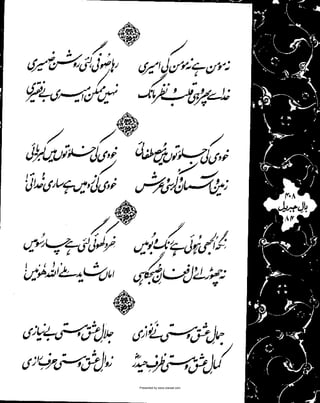 نہ مومن ہے نہ مومن کی امیری
رہا صوفی گئی روشن ضمیری
خدا سے پھر وہی قلب و نظر مانگ
نہیں ممکن امیری بے فقیری
خودی کی جلوتوں میں مصطفائی
خودی کی خلوتوں میں کبریائی
زمین و آسمان و کرسی و عرش
خودی کی زد میں ہے ساری خدائی
نگہ الجھی ہوئی ہے رنگ و بو میں
خرد کھوئی گئی ہے چار سو میں
نہ چھوڑ اے دل فغان صبحگاہی
اماں شاید ملے اللہ ھو میں
جمال عشق و مستی نے نوازی
جلال عشق و مستی بے نیازی
کمال عشق و مستی ظرف حیدر
زوال عشق و مستی حرف رازی
بال جبریل
Presented by www.iqbalkalmati.com